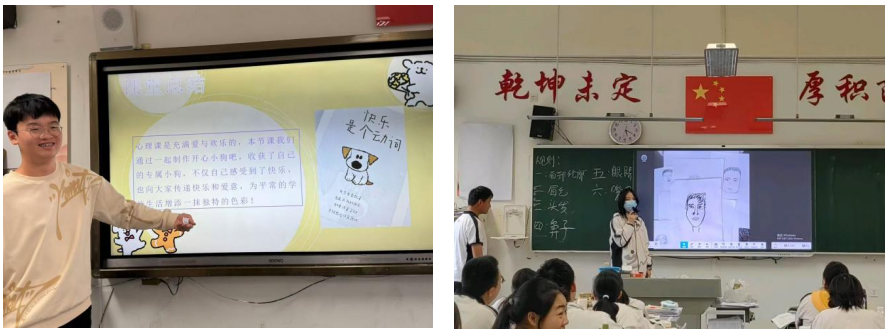 课堂总结
心理课是充满爱与欢乐的，本节课我们
通过一起制作开心小狗吧，收获了自己
的专属小狗。不仅自己感受到了快乐，
也向大家传递快乐和爱意，为平常的学
生活增添一抹独特的色彩！
快乐
是个动词
乾坤未定
厚积
规则：
五.眼睛
二.眉毛
六.
三.头发
四.鼻子